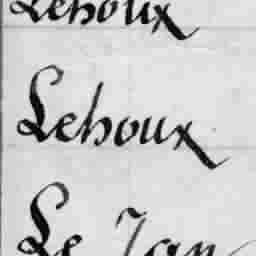 Lehoux
Lehoux
Le Jan